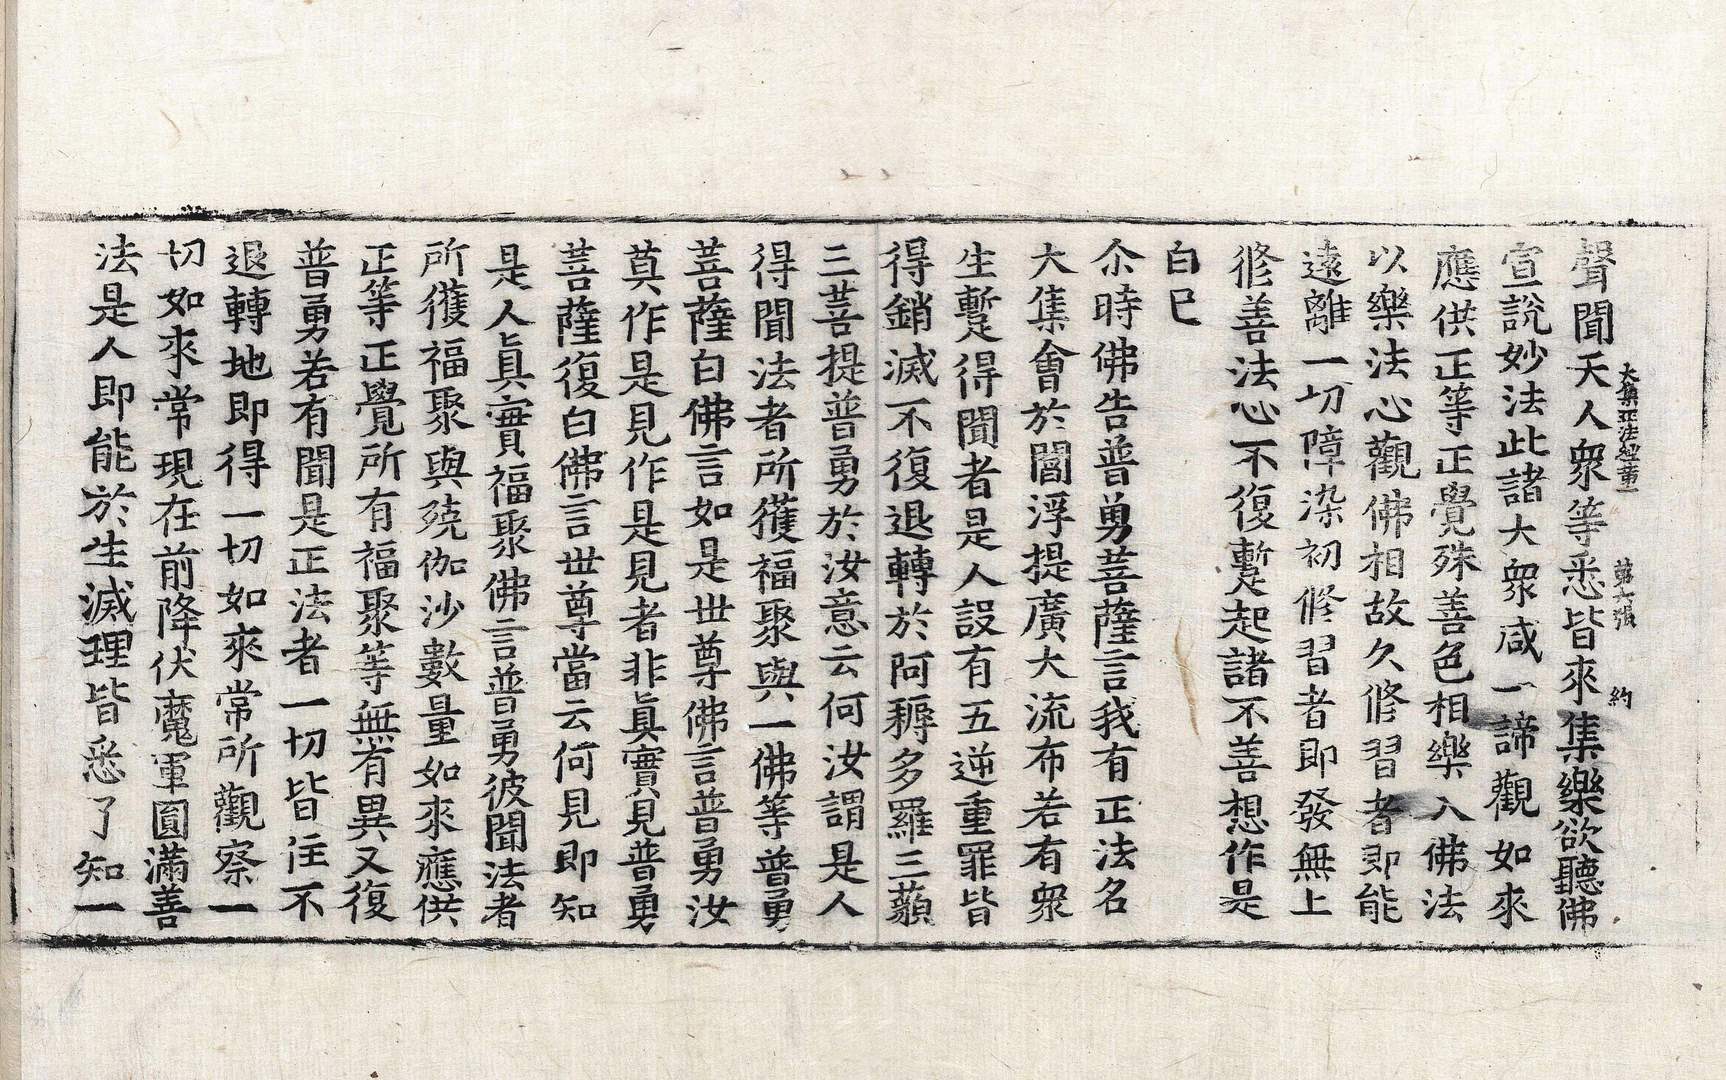 大集正法經卷一 第六張 約
聲聞天人衆等悉皆來集樂欲聽佛
宣說妙法此諸大衆咸一諦觀如來
應供正等正覺殊善色相樂入佛法
以樂法心觀佛相故久修習者即能
遠離一切障染初修習者即發無上
修善法心不復暫起諸不善想作是
白已
尒時佛告普勇菩薩言我有正法名
大集會於閻浮提廣大流布若有衆
生暫得聞者是人設有五逆重罪皆
得銷滅不復退轉於阿耨多羅三藐
三菩提普勇於汝意云何汝謂是人
得聞法者所獲福聚與一佛等普勇
菩薩白佛言如是世尊佛言普勇汝
莫作是見作是見者非眞實見普勇
菩薩復白佛言世尊當云何見即知
是人眞實福聚佛言普勇彼聞法者
所獲福聚與殑伽沙數量如來應供
正等正覺所有福聚等無有異又復
普勇若有聞是正法者一切皆住不
退轉地即得一切如來常所觀察一
切如來常現在前降伏魔軍圓滿善
法是人即能於生滅理皆悉了知一